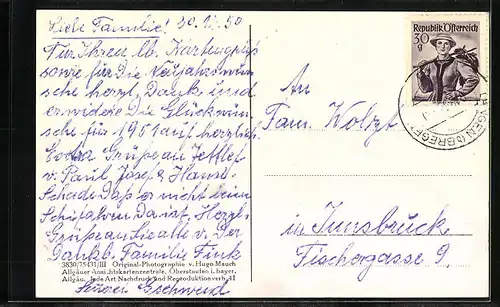 Liebe Familie! 30.12.50
Für Ihren lb. Kartengruß
sowie für Die Neujahrswün
sche herzl. Dank und
erwidere Die Glückwün
sche für 1951 auf herzlich.
Grüße an
v. Paul Josef & Hansl.
Schade Daß er nicht beim
Schifahren Da ist. Herzl.
Grüße an alle v. Der
Dankb. Familie Fink
3830/75431/III Original-Photographie v. Hugo Mauch
Allgäuer Ansichtskartenzentrale, Oberstaufen i. bayer.
Allgäu. Jede Art Nachdruck und Reproduktion verb. 41
Republik Österreich
30
g
An
Fam. Wolzt
in Innsbruck
Fischergasse 9.